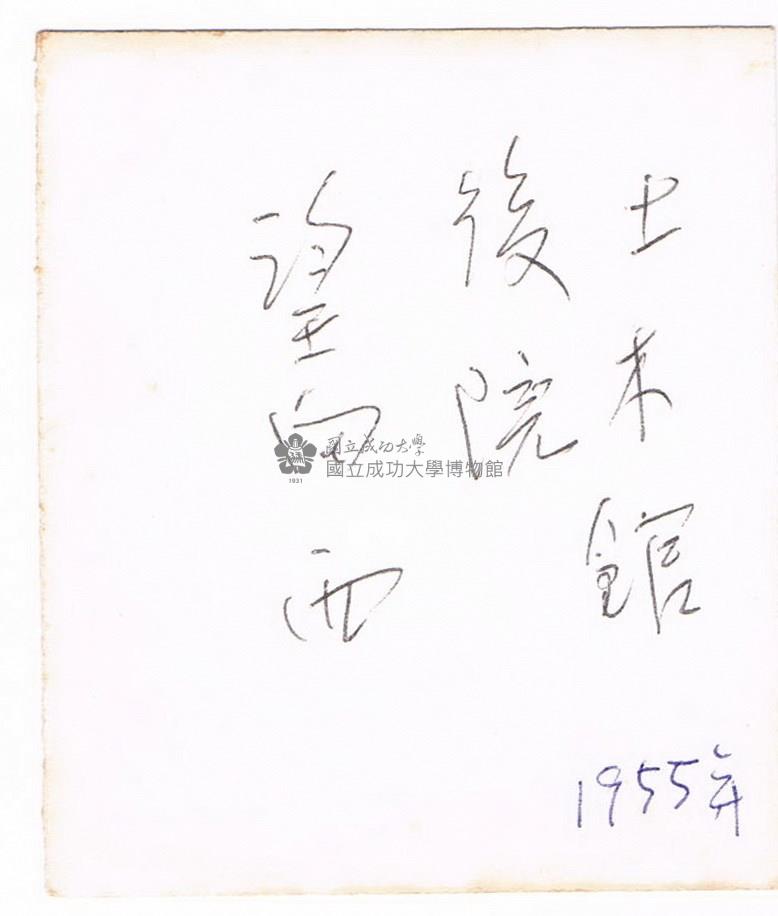 土木館
後院
望向西
1955年
國立成功大學
國立成功大學博物館
1931